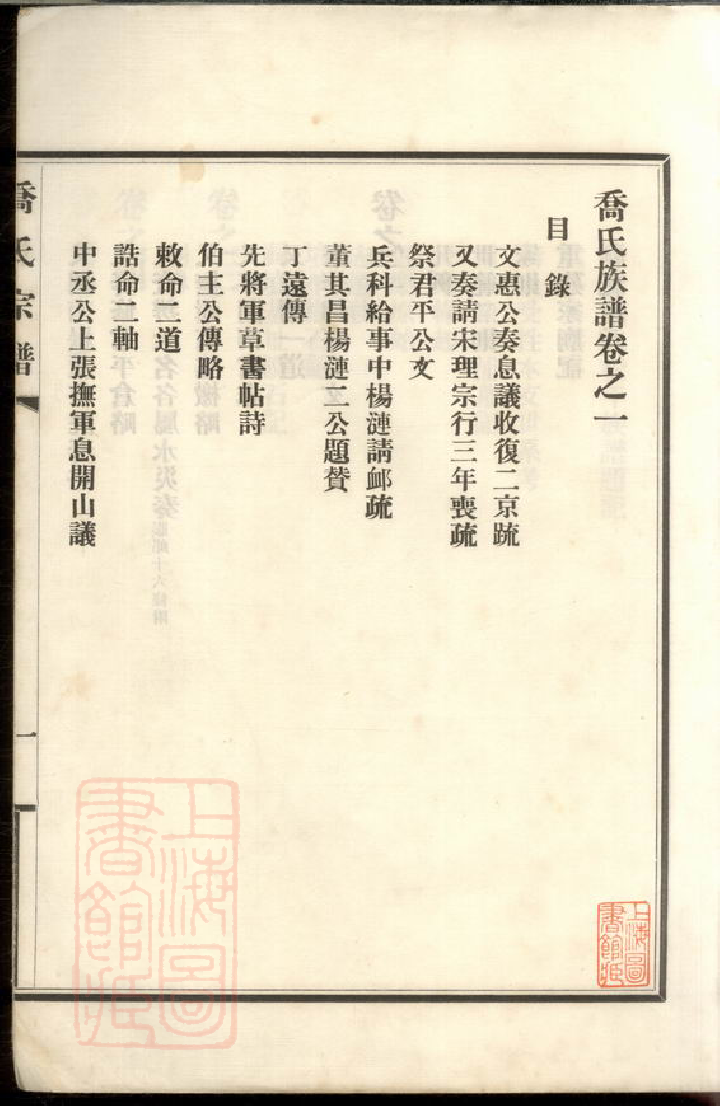 喬氏族譜卷之一
目錄
文惠公奏息議收復二京疏
又奏請宋理宗行三年喪疏
祭君平公文
兵科給事中楊漣請卹疏
董其昌楊漣二公題贊
丁遠傳
先將軍草書帖詩
伯圭公傳略
敕命二道
誥命二軸
中丞公上張撫軍息開山議
喬氏宗譜
一
上海圖書館藏
上海圖書館藏